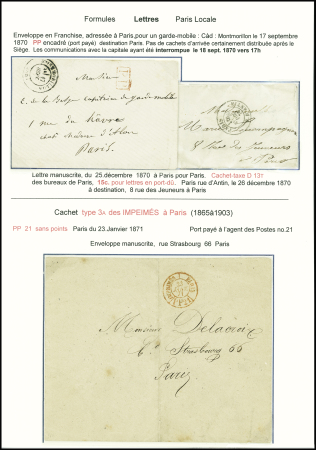 Formules Lettres Paris Locale
Enveloppe en Franchise, adressée à Paris,pour un garde-mobile : Càd : Montmorillon le 17 septembre
1870 PP encadré (port payé) destination Paris. Pas de cachets d'arrivée certainement distribuée après le
Siège. Les communications avec la capitale ayant été interrompue le 18 sept. 1870 vers 17h
Monsieur
capitaine de garde mobile
1 rue de
Paris.
Lettre manuscrite, du 25.décembre 1870 à Paris pour Paris. Cachet-taxe D 13
des bureaux de Paris, 15c. pour lettres en port-dû. Paris rue d'Antin, le 26 décembre 1870
à destination, 8 rue des Jeuneurs à Paris
Cachet type 3A des IMPEIMÉS à Paris (1865à1903)
PP 21 sans points Paris du 23.Janvier 1871 Port payé à l'agent des Postes no.21
Enveloppe manuscrite, rue Strasbourg 66 Paris
Monsieur Delacroix
Strasbourg 66
Paris